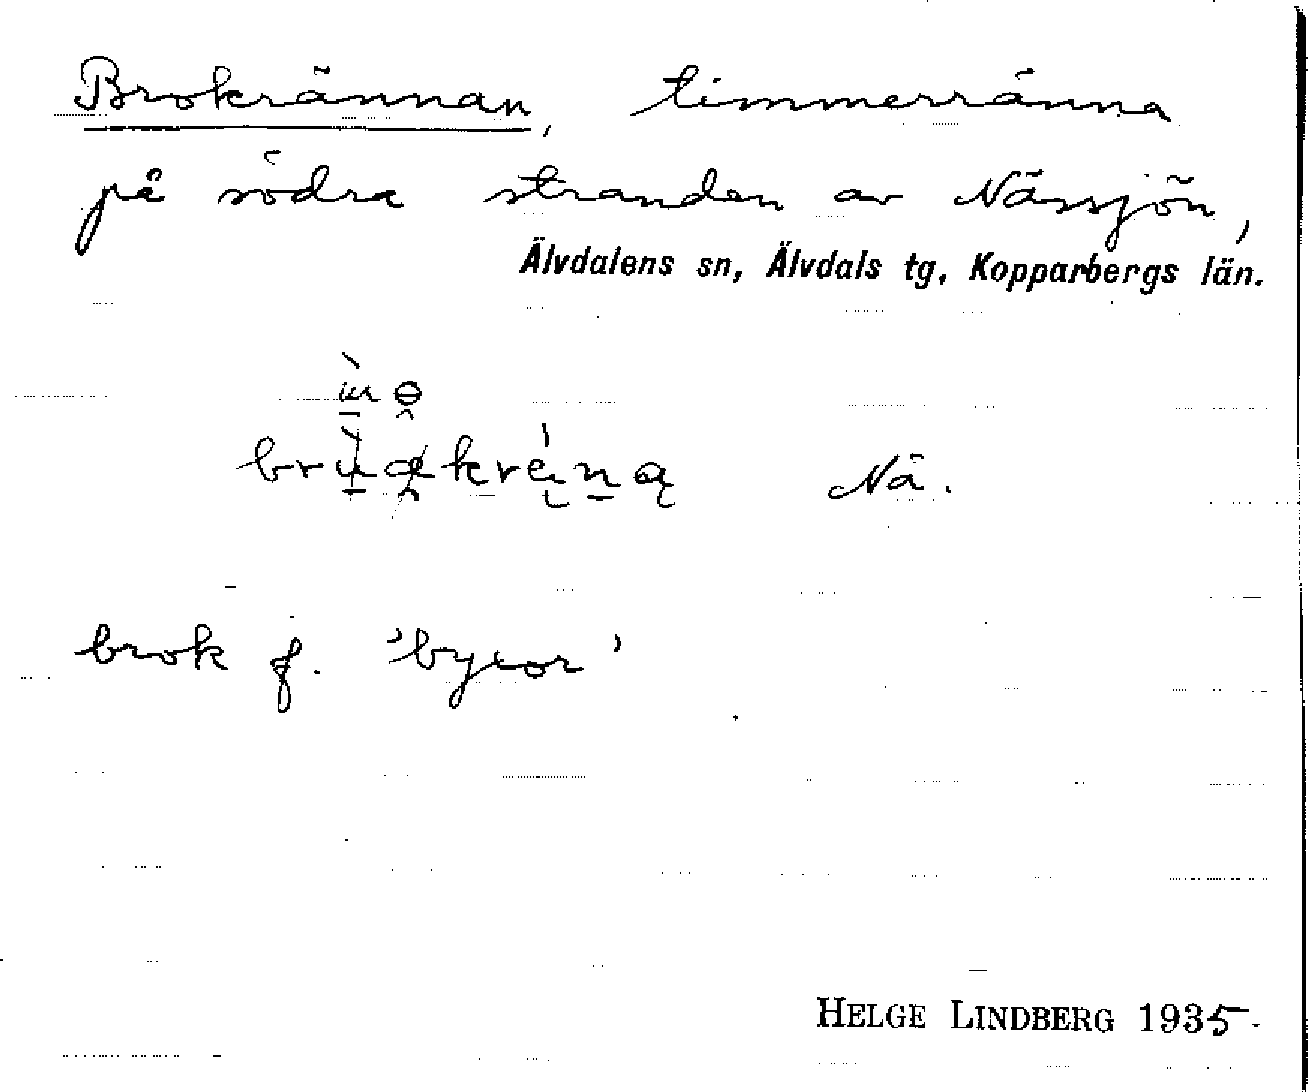 Brokrännan, timmerränna
på södra stranden av Nässjön,
Älvdalens sn, Älvdals tg, Kopparbergs län.
Nä.
brok f. 'byxor'
HELGE LINDBERG 1935.